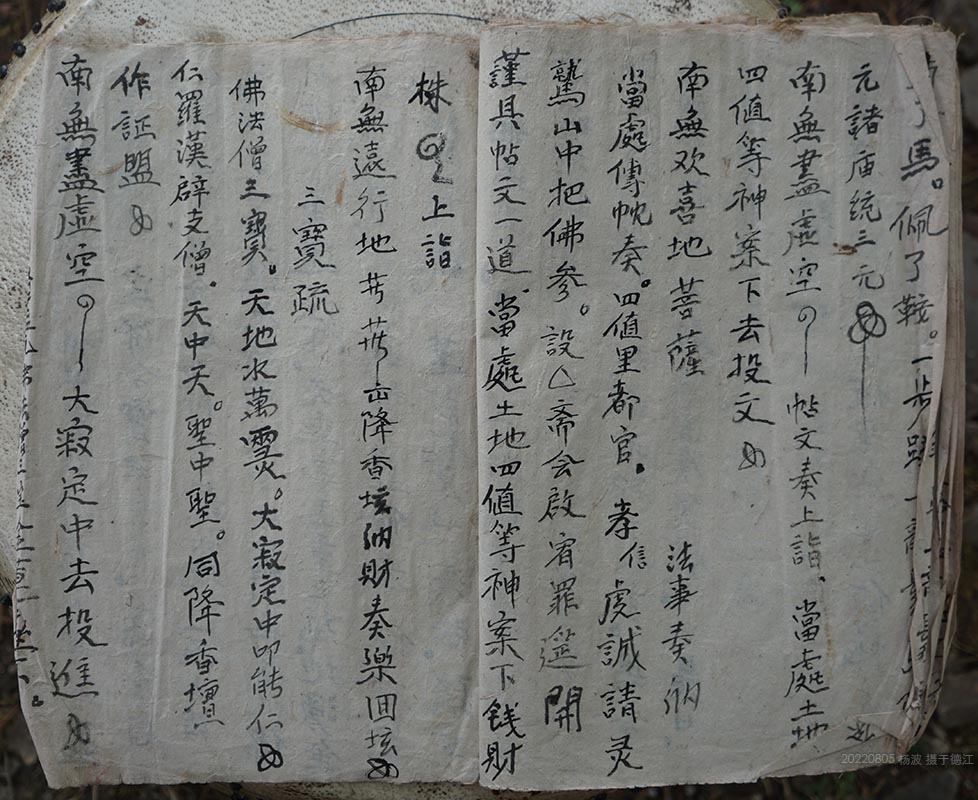 馬。佩了鞍。一步
元諸庙統三元
南無盡虛空 帖文奏上詣、當處土地
四值等神案下去投文
南無欢喜地菩薩 法事奏納
當處傳 奏。四值里都官。孝信虔誠請灵
鷲山中把佛參。設△斋会啟宥罪 開
謹具帖文一道、當處土地四值等神案下钱財
株 上詣
南無遠行地 降香坛納財奏樂回坛
三寶疏
佛法僧三寶。天地水萬灵。大寂定中叩能仁
仁羅漢辟支僧。天中天。聖中聖。同降香壇
作証盟
南無盡虛空 大寂定中去投進
20220805 杨波 摄于德江